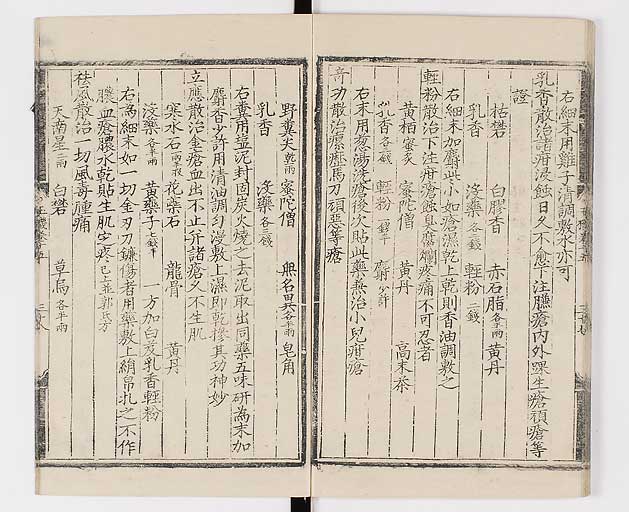 右細末用雞子清調敷水亦可
乳香散治諸疳浸蝕日久不愈下注臁瘡內外踝生瘡頑瘡等
證
枯礬 白膠香 赤石脂各半兩 黃丹
乳香 沒藥各三錢 輕粉二錢
右細末加麝些小如瘡濕乾上乾則香油調敷之
輕粉散治下注疳瘡蝕臭腐爛疼痛不可忍者
黃栢蜜炙 密陀僧 黃丹 高末茶
乳香各三錢 輕粉一錢半 麝少許
右末用葱湯洗瘡後次貼此藥兼治小兒疳瘡
奇功散治瘰癧馬刀頑惡等瘡
野糞尖乾兩 密陀僧 無名異各半兩 皂角
乳香 沒藥各三錢
右糞用鹽泥封固炭火燒之去泥取出同藥五味研為末加
麝香少許用清油調勻漫敷上濕即乾摻其功神妙
立應散治金瘡血出不止并諸瘡久不生肌
寒水石 花蘂石 龍骨 黃丹
沒藥各半兩 黃藥子 一方加白芨乳香輕粉
右為細末如一切金刃刀鐮傷者用藥敷上絹帛扎之不作
膿血瘡膿水乾貼生肌定疼已上並郭氏方
祛風散治一切風毒腫痛
天南星 白礬 草烏各半兩